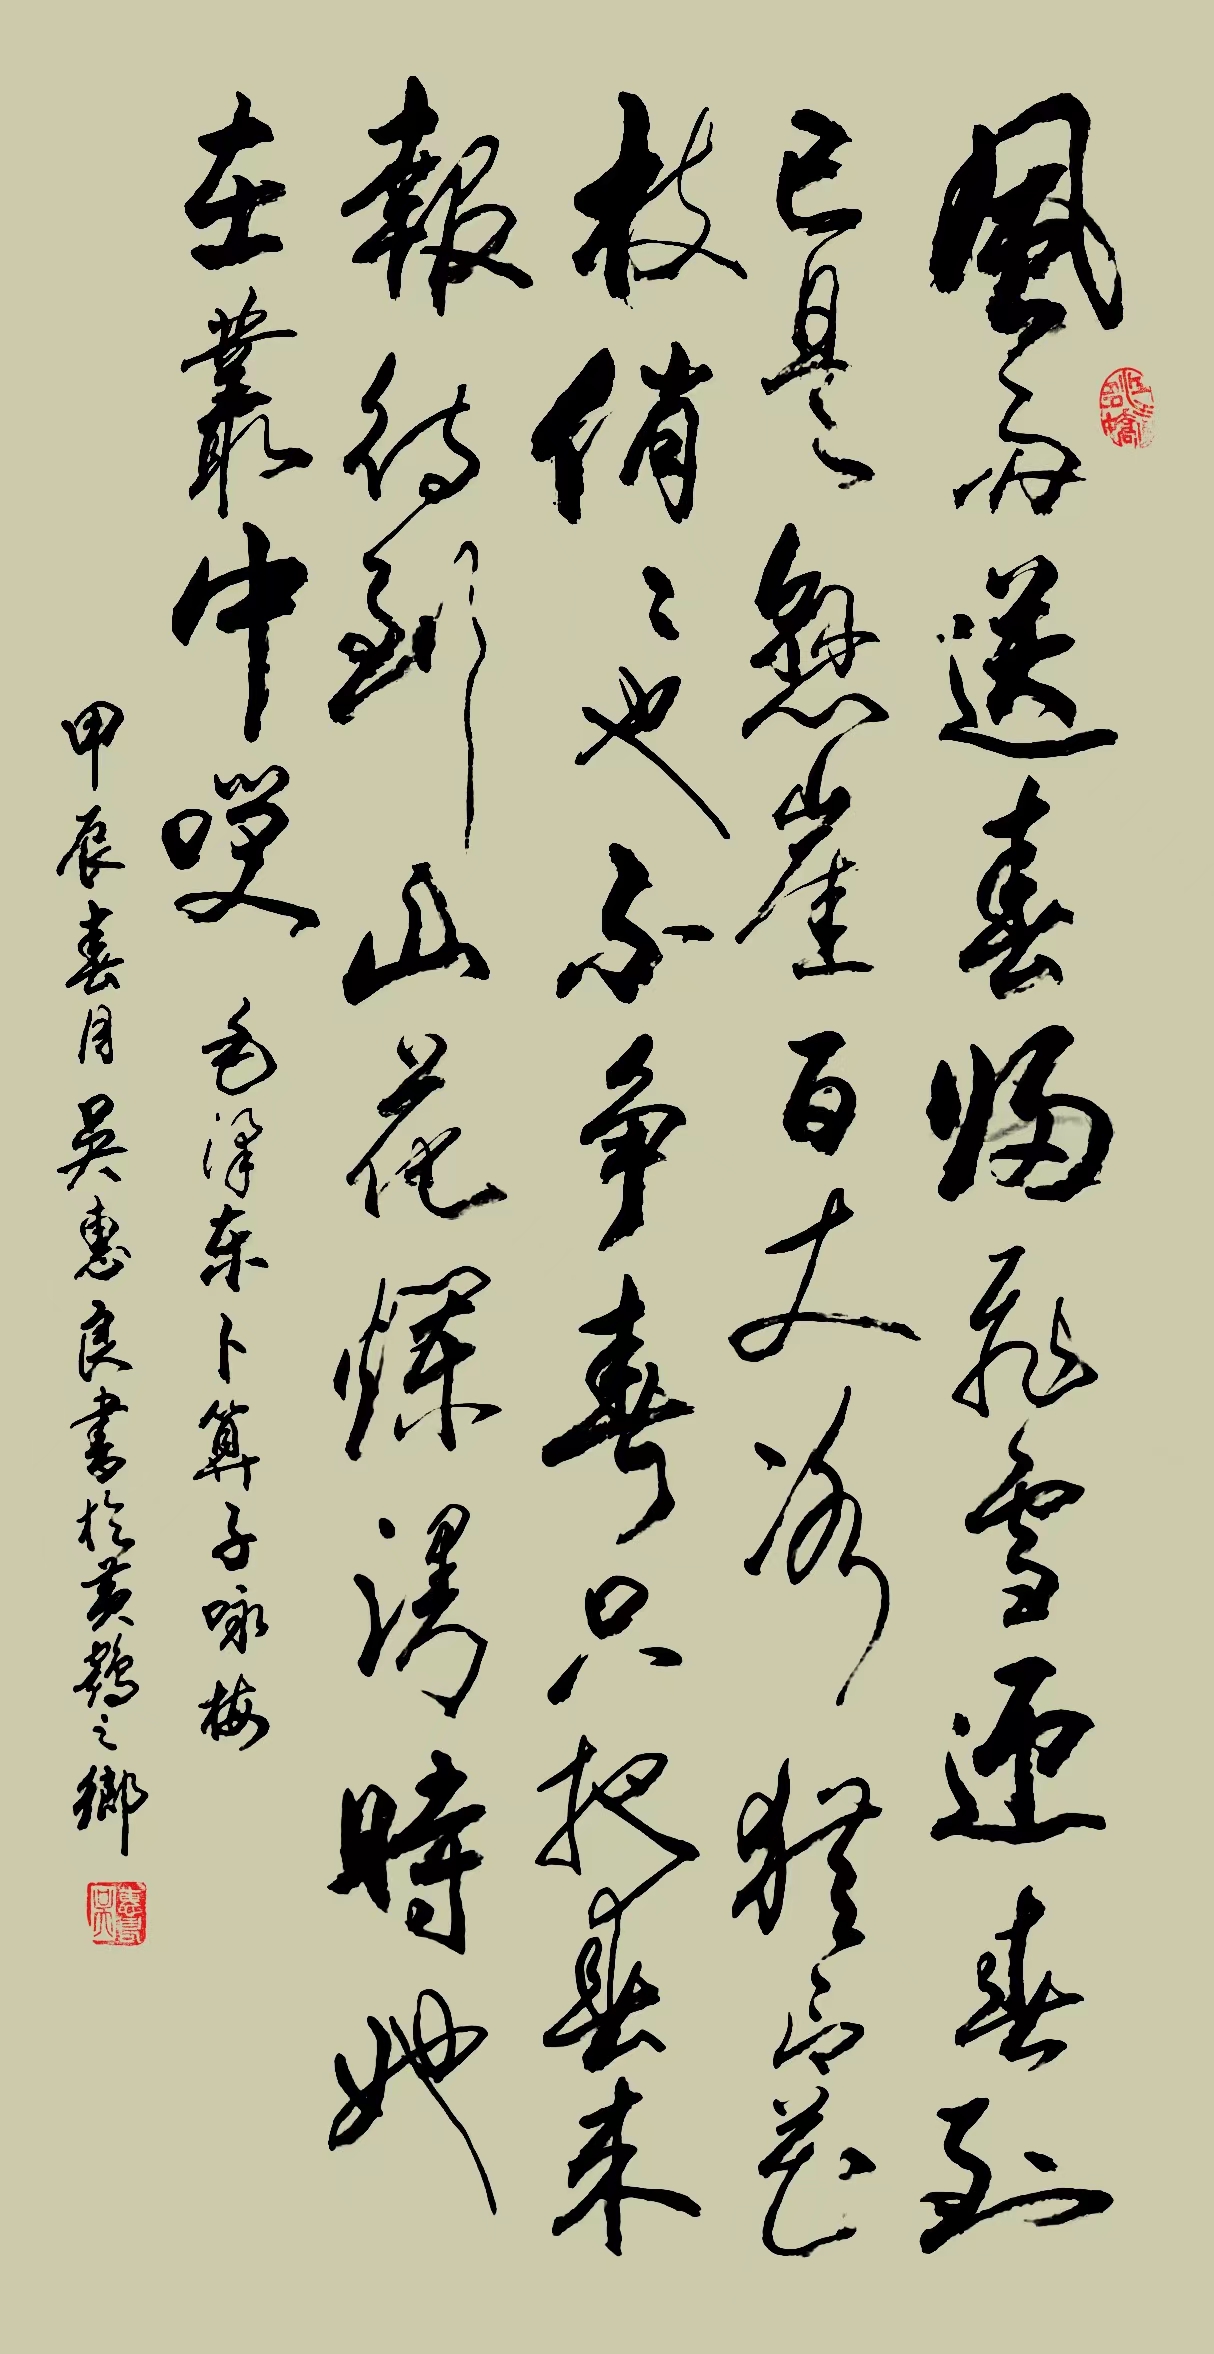 風雨送春歸飛雪迎春到
已是懸崖百丈冰猶有花
枝俏〻也不争春只把春來
報待到山花爛漫時她
在叢中笑 毛澤東卜算子咏梅
甲辰春月吳惠良書於黄鶴之鄉
江山多嬌